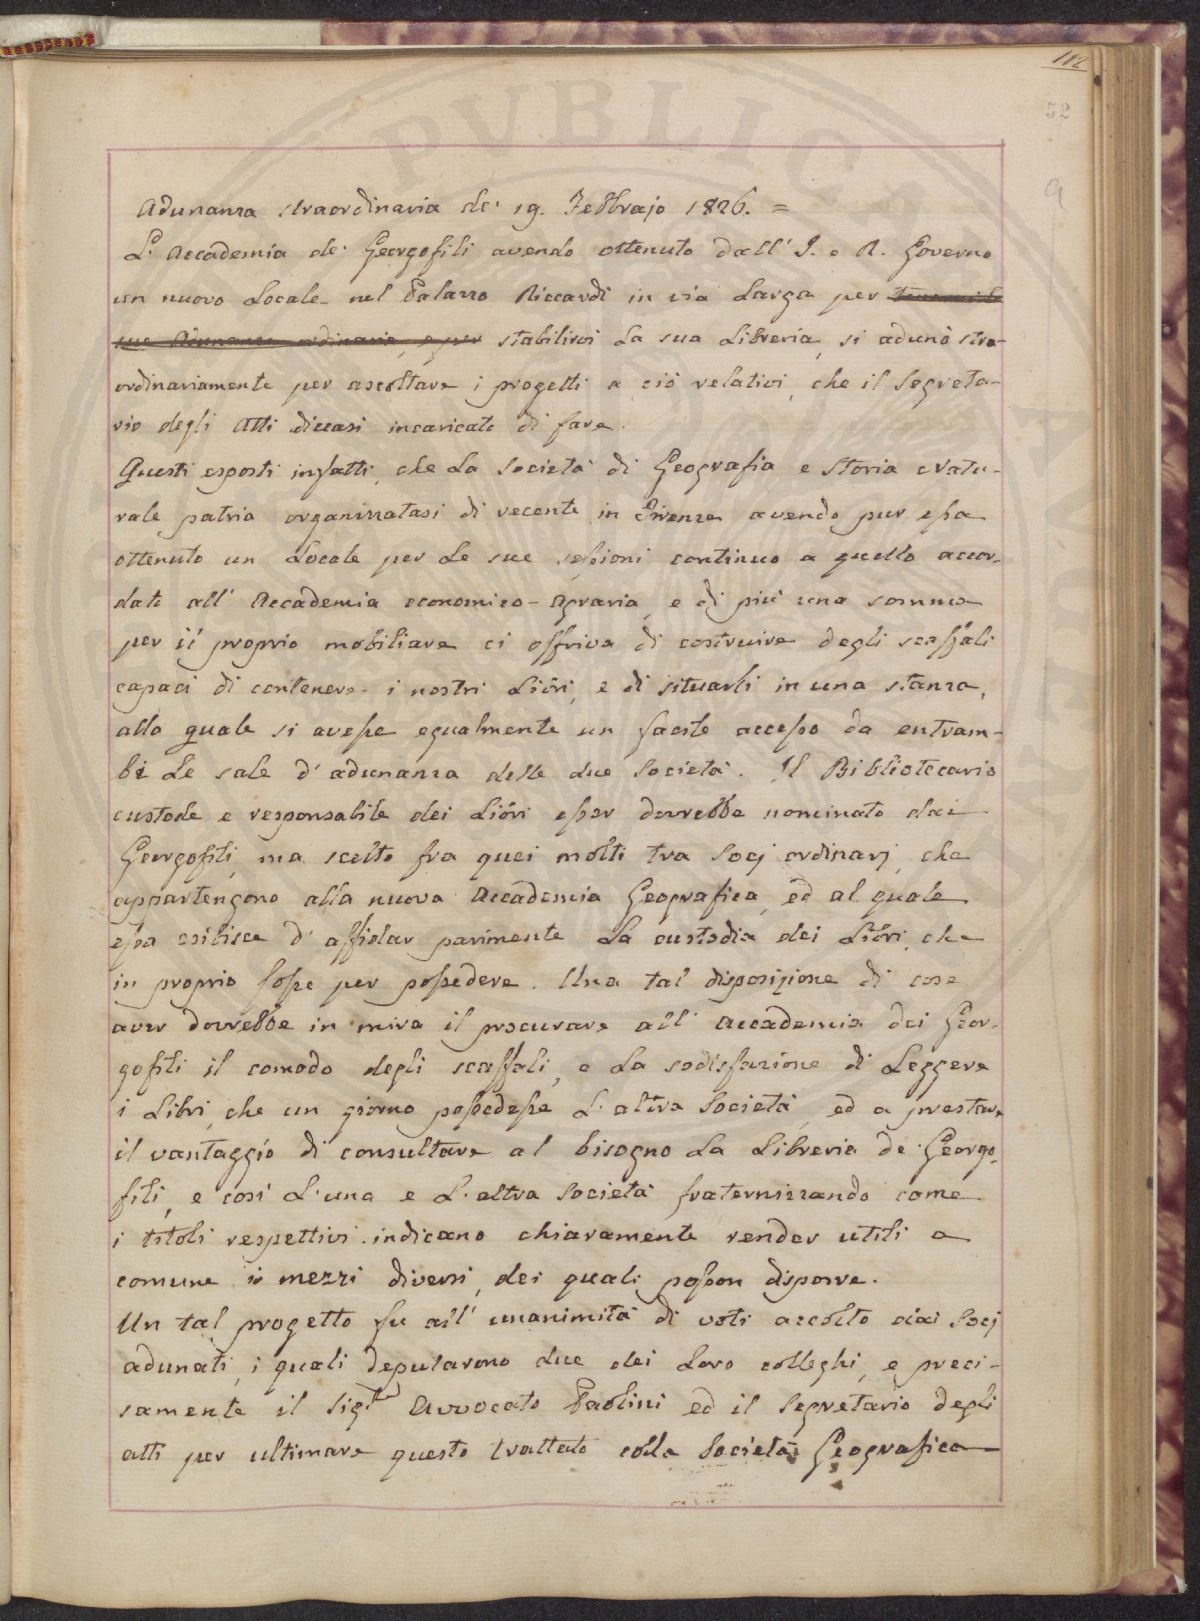 112
52
9
PVBLIC
Adunanza straordinaria de' 19. Febbrajo 1826. =
L'Accademia de' Georgofili avendo ottenuto dall' I. e R. Governo
un nuovo Locale nel Palazzo Riccardi in via Larga per tenervi le
sue Adunanze ordinarie, e per stabilirvi la sua Libreria, si adunò stra-
ordinariamente per ascoltare i progetti a ciò relativi, che il Segreta-
rio degli Atti diceasi incaricato di fare.
Questi esposti infatti, che la Società di Geografia e Storia Natu-
rale patria organizzatasi di recente in Firenze avendo pur essa
ottenuto un Locale per le sue sessioni continuo a quello accor-
dato all' Accademia economico-Agraria, e di più una somma
per il proprio mobiliare ci offriva di costruire degli scaffali
capaci di contenere i nostri Libri, e di situarli in una stanza,
alla quale si avesse egualmente un facile accesso da entram-
bi le sale d'adunanza delle due Società. Il Bibliotecario
custode e responsabile dei Libri esser dovrebbe nominato dai
Georgofili, ma scelto fra quei molti tra Socj ordinarj, che
appartengono alla nuova Accademia Geografica, ed al quale
essa esibisce d'affidar parimente la custodia dei Libri, che
in proprio fosse per possedere. Una tal disposizione di cose
aver dovrebbe in mira il procurare all' Accademia dei Geor-
gofili il comodo degli scaffali, e la sodisfazione di Leggere
i Libri, che un giorno possedesse L'altra Società, ed a prestare
il vantaggio di consultare al bisogno la Libreria de' Georgo-
fili, e così L'una e L'altra Società fraternizzando come
i titoli respettivi indicano chiaramente render utili a
comune i mezzi diversi, dei quali posson disporre.
Un tal progetto fu all' unanimità di voti accolto dai Socj
adunati, i quali deputarono due dei Loro colleghi, e preci-
samente il Sigre Avvocato Paolini ed il Segretario degli
atti per ultimare questo trattato colla Società Geografica